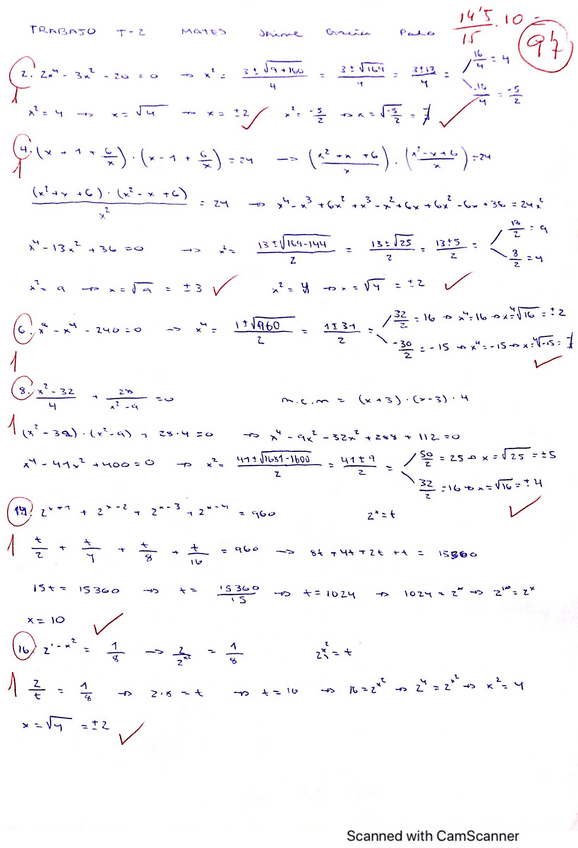 TRABAJO T-2 MATES Jaime García 14'5/15 . 10 = 9'7
2. 2x⁴ - 3x² - 20 = 0 → x² = (3 ± √(9+160))/4 = (3 ± √169)/4 = (3 ± 13)/4 = 16/4 = 4
-10/4 = -5/2
1 x² = 4 → x = √4 → x = ±2 ✓ x² = -5/2 → x = √(-5/2) = ∄ ✓
4. (x + 1 + 6/x) · (x - 1 + 6/x) = 24 → ((x² + x + 6)/x) · ((x² - x + 6)/x) = 24
1
((x² + x + 6) · (x² - x + 6))/x² = 24 → x⁴ - x³ + 6x² + x³ - x² + 6x + 6x² - 6x + 36 = 24x²
x⁴ - 13x² + 36 = 0 → x² = (13 ± √(169-144))/2 = (13 ± √25)/2 = (13 ± 5)/2 = 18/2 = 9
8/2 = 4
x² = 9 → x = √9 = ±3 ✓ x² = 4 → x = √4 = ±2 ✓
6. x⁸ - x⁴ - 240 = 0 → x⁴ = (1 ± √960)/2 = (1 ± 31)/2 = 32/2 = 16 → x⁴ = 16 → x = ⁴√16 = ±2
-30/2 = -15 → x⁴ = -15 → x = ⁴√-15 = ∄
1 ✓
8. (x² - 32)/4 + 28/(x² - 9) = 0 m.c.m = (x+3) · (x-3) · 4
1 (x² - 32) · (x² - 9) + 28 · 4 = 0 → x⁴ - 9x² - 32x² + 288 + 112 = 0
x⁴ - 41x² + 400 = 0 → x² = (41 ± √(1681-1600))/2 = (41 ± 9)/2 = 50/2 = 25 → x = √25 = ±5
32/2 = 16 → x = √16 = ±4
✓
2ˣ⁻² + 2ˣ⁻³ + 2ˣ⁻⁴ = 960 2ˣ = t
1 t/2 + t/4 + t/8 + t/16 = 960 → 8t + 4t + 2t + t = 15360
15t = 15360 → t = 15360/15 → t = 1024 → 1024 = 2ˣ → 2¹⁰ = 2ˣ
x = 10 ✓
16. 2^(1-x²) = 1/8 → 2/2^(x²) = 1/8 2^(x²) = t
1 2/t = 1/8 → 2·8 = t → t = 16 → 16 = 2^(x²) → 2⁴ = 2^(x²) → x² = 4
x = √4 = ±2 ✓
Scanned with CamScanner